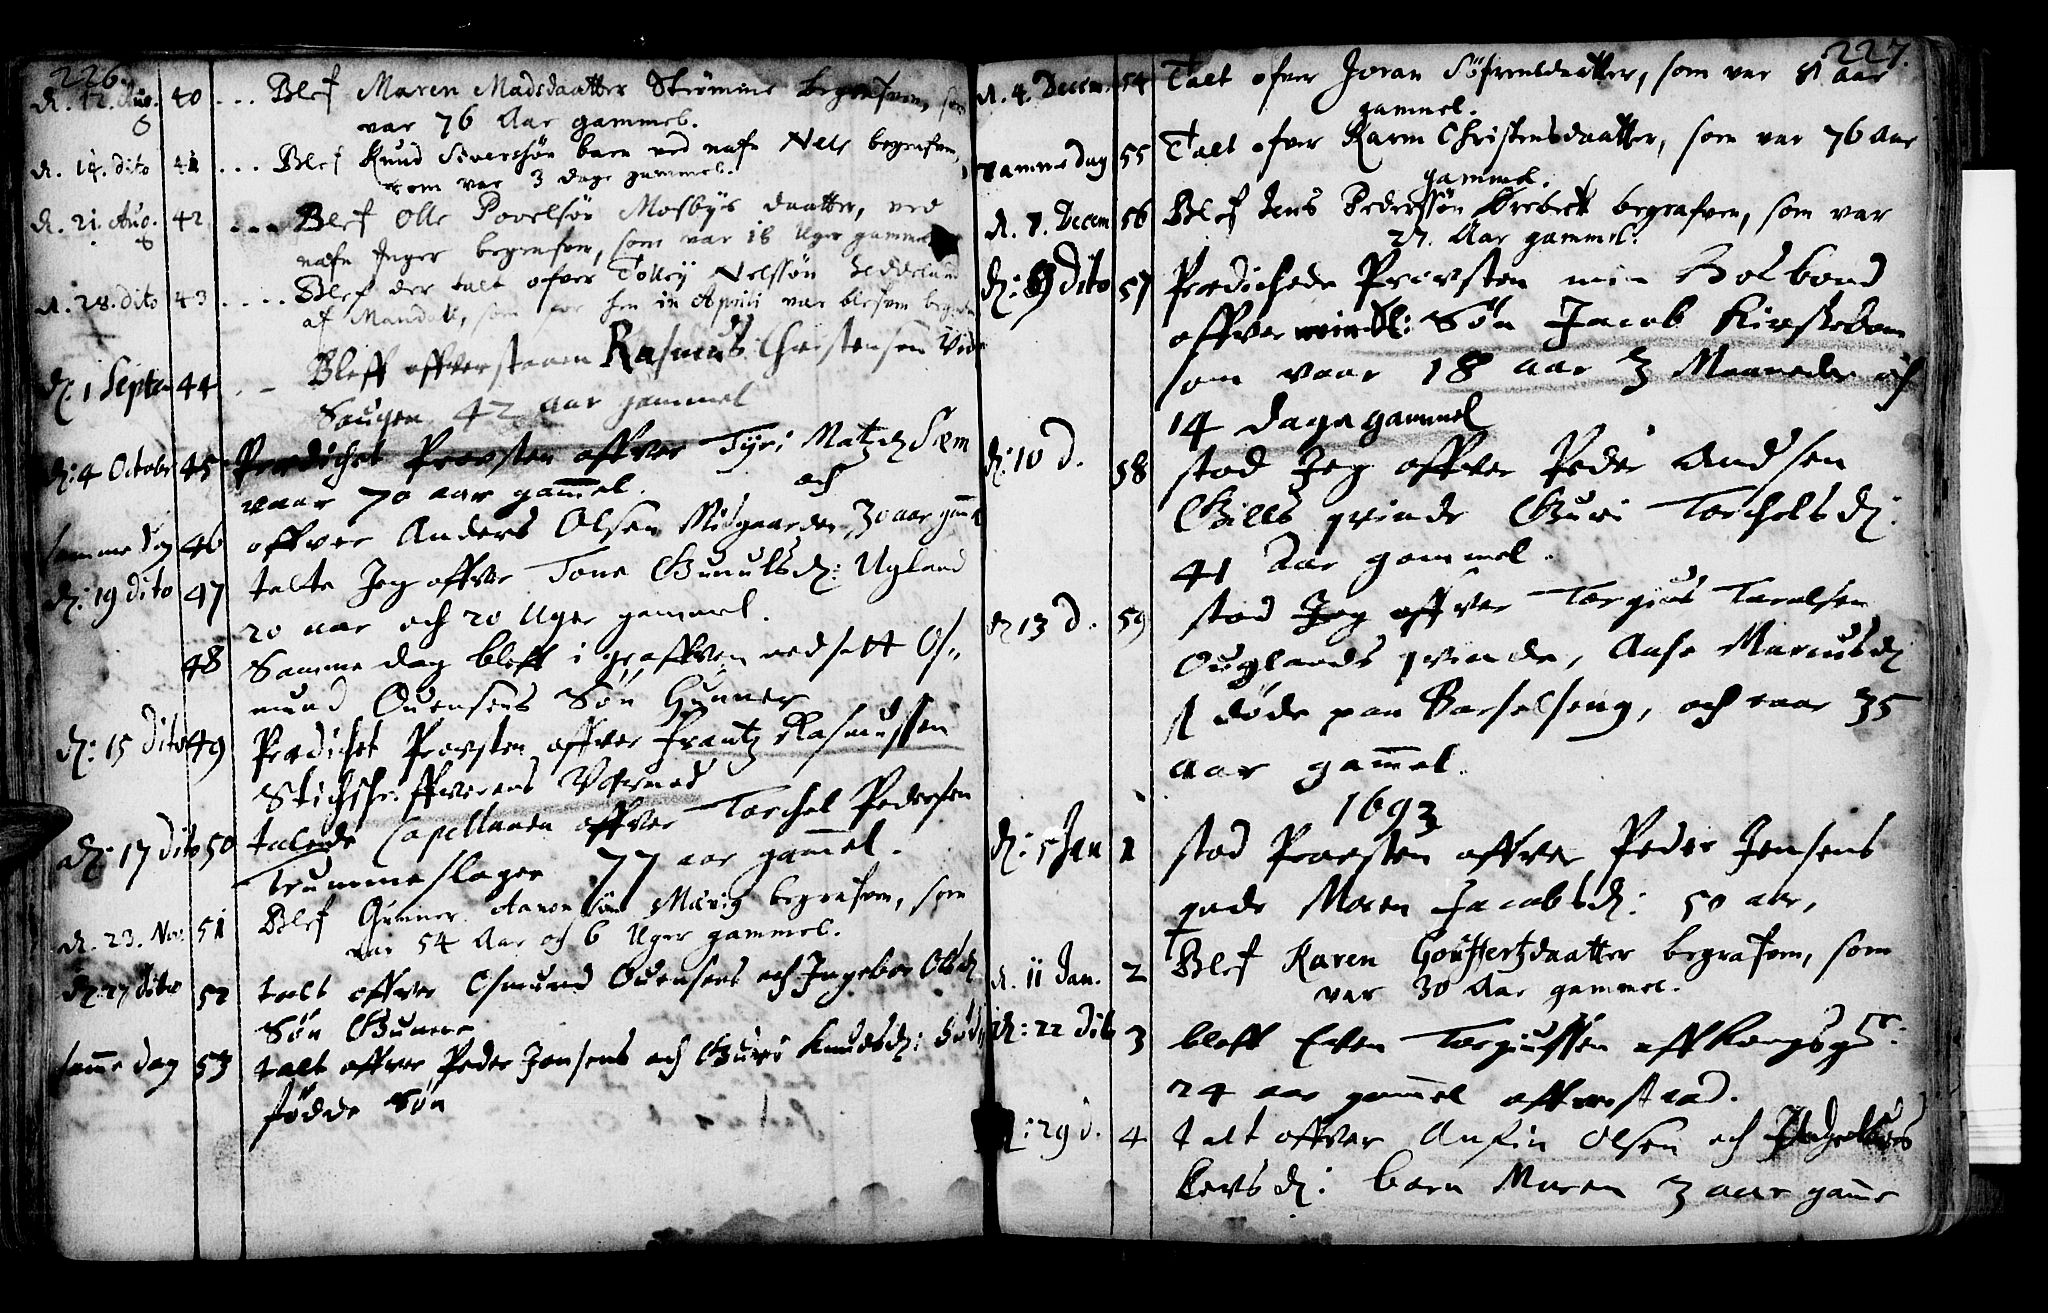 226.
d. 12. Aug. 40 ... Blef Maren Madsdaatter Strømme begrafven, som
var 76 Aar gammel.
d. 14. dito 41 ... Blef Knud Siversøn barn ved nafn Nels begrafven,
som var 3 dage gammel.
d. 21. Aug. 42 ... Blef Olle Povelsøn Mosbys daatter, ved
nafn Inger begrafven, som var 18 Uger gammel
d. 28. dito 43 .... Blef der talt ofver Tolley Nelssøn
af Mandall, som for hen in Aprili var blefven
d: 1 Septem 44 .. Bleff offverstanen Rasmus Christensen Vide
Saugen 42 aar gammel
d: 4 Octobr 45 Prædichet Provsten offver Tyri Matzd Sæm
vaar 70 aar gammel. och
samme dag 46 offver Anders Olsen Midgaarden, 30 aar gml
d: 19 dito 47 talte Jeg offver Tone Gunulsd: Ugland
20 aar och 20 Uger gammel.
48 Samme dag bleff i graffven nedsatt Os,,
mund Ouensens Søn Gunner
d: 15 dito 49 Prædichet Provsten offver Frantz Rasmussen
Stichthr. ffverens
d: 17 dito 50 talede Capellanen offver Torchel Pedersen
Trummeslager 77 aar gammel.
d. 23. Nov. 51 Blef Gunner Aanonsøn Møvig begrafven, som
var 54 Aar och 6 Uger gammel.
d: 27 dito 52 talt offver Osmund Ouensens och Ingebor Olsd
Søn Gunner
samme dag 53 talt offver Peder Jensens och Guri Knudsd: død
fødde Søn
227.
d. 4. Decem. 54 Talt ofver Joran Søfrensdaatter, som var 81 aar
gammel.
samme dag 55 Talt ofver Karen Christensdaatter, som var 76 Aar
gammel.
d. 7. Decem 56 Blef Jens Pederssøn begrafven, som var
27. Aar gammel.
d: 9 dito 57 Prædichede Provsten min Hosbond
offver min Sl: Søn Jacob Kirskebom
som vaar 18 aar 3 Maaneder och
14 dage gammel
d: 10 d. 58 stod Jeg offver Peder Andsen
Gills qvinde Guri Torchelsd:
41 Aar gammel.
d 13 d. 59 stod Jeg offver Torgius Taralsen
Ouglands qvinde, Aase Marcusd
døde paa Barselseng, och vaar 35
aar gammel.
1693
d: 5 Jan 1 stod Provsten offver Peder Jensens
gode Maren Jacobsd: 50 aar,
d. 11 Jan. 2 Blef Karen begrafven, som
var 30 Aar gammel.
d: 22 dito 3 bleff Even Torgiussen aff Kongsgr:
24 aar gammel offverstaad.
d: 29 d. 4 talt offver Anfin Olsen och
Larsd: barn Maren 3 aar gamm